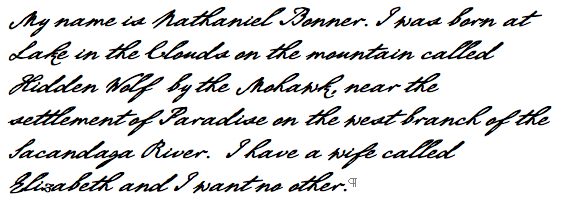 My name is Nathaniel Bonner. I was born at
Lake in the Clouds on the mountain called
Hidden Wolf by the Mohawk, near the
settlement of Paradise on the west branch of the
Sacandaga River. I have a wife called
Elizabeth and I want no other.¶